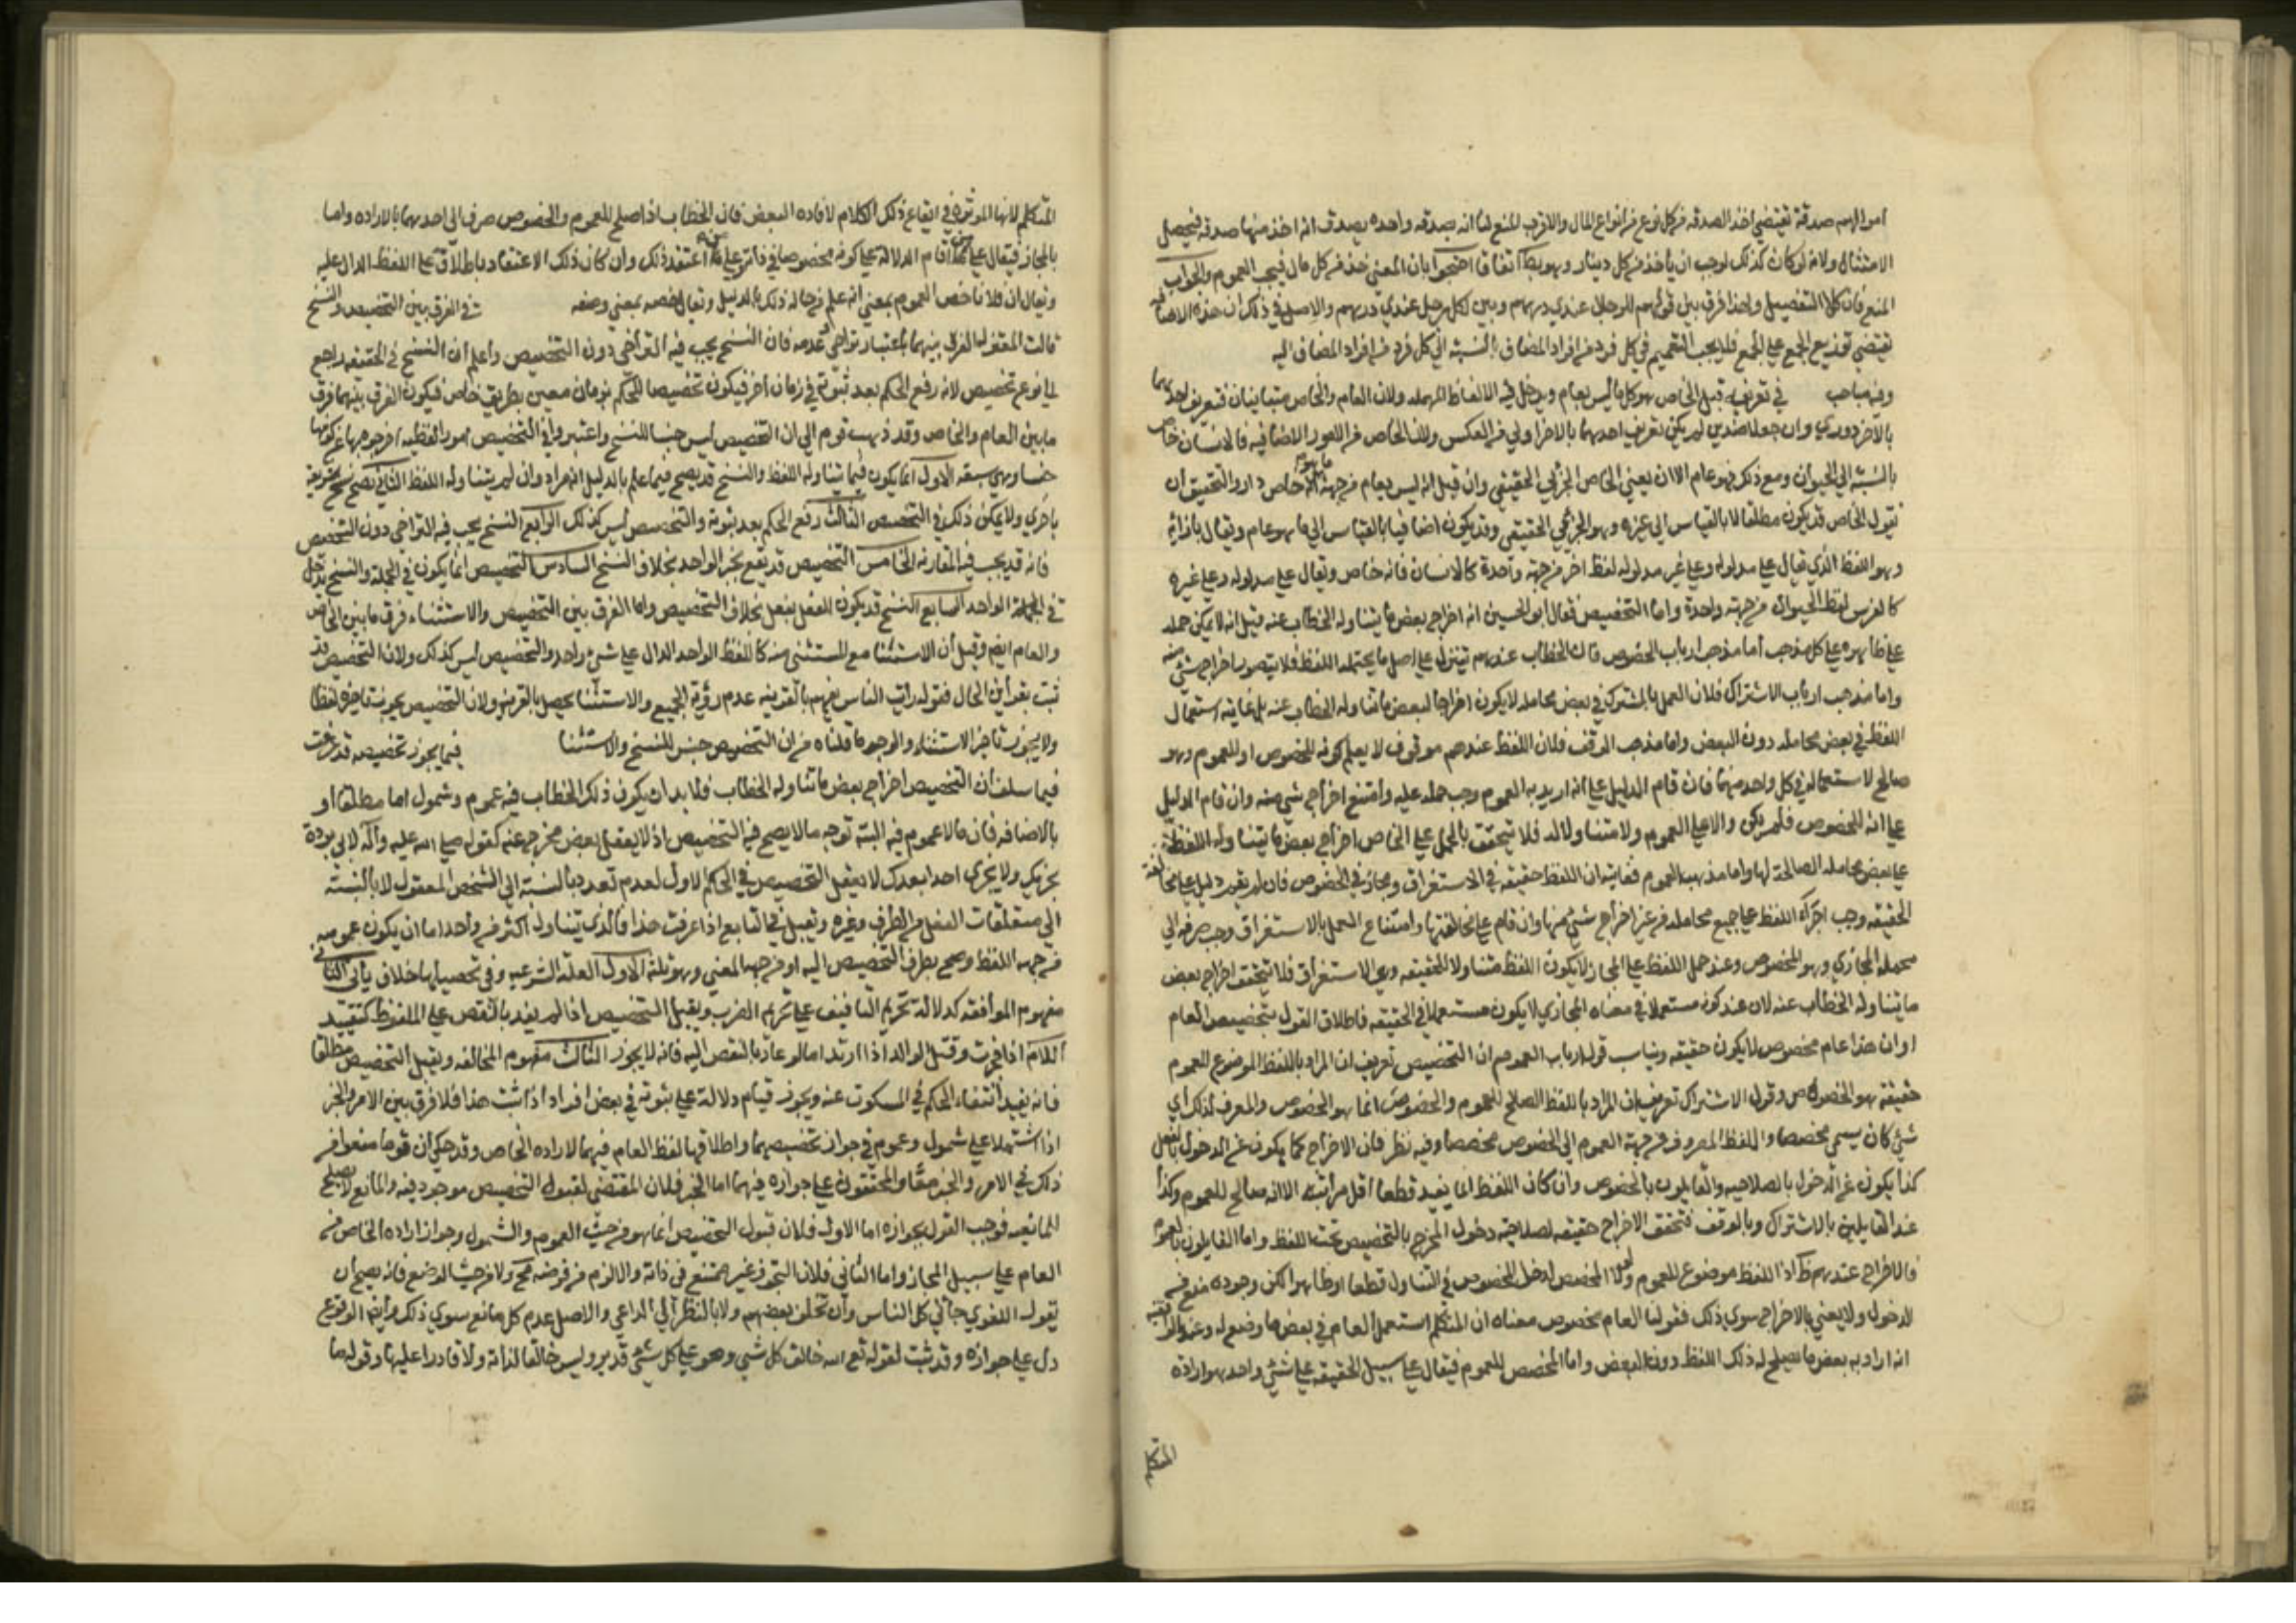 اموالهم صدقة تقتضي اخذ الصدقه من كل نوع من انواع المال والاقرب المنع لنا انه بصدقه واحده يصدق انه اخذ منها صدقه فيحصل
الامتثال ولانه لو كان كذلك لوجب ان ياخذ من كل دينار وهو بط اتفاقا احتجوا بان المعنى خذ من كل مال فيجب العموم والجواب
المنع فان كلا التفصيل ولهذا فرق بين قولهم للرجال عندي درهم وبين لكل رجل عندي درهم والاصل في ذلك ان هذه الاضافه
تقتضي توزيع الجمع على الجمع فلا يجب التعميم في كل فرد من افراد المضاف بالنسبة الى كل فرد من افراد المضاف اليه
وفيه مباحب في تعريفه قيل الخاص هو كل ما ليس بعام ويدخل فيه الالفاظ المهمله ولان العام والخاص متباينان فتعريف احدهما
بالاخر دوري وان جعلا ضدين لم يكن تعريف احدهما بالاخر اولى من العكس ولان الخاص من الامور الاضافيه فالانسان خاص
بالنسبة الى الحيوان ومع ذلك فهو عام الا ان يعني الخاص الجزئي الحقيقي وان قيل انه ليس بعام من جهة ما هو خاص دار والتحقيق ان
نقول الخاص قد يكون مطلقا لا بالقياس الى غيره وهو الجزئي الحقيقي وقد يكون اضافيا بالقياس الى ما هو عام ويقال بازائه
وهو اللفظ الذي يقال على مدلوله وعلى غير مدلوله لفظ اخر من جهة واحدة كالانسان فانه خاص ويقال على مدلوله وعلى غيره
كالفرس لفظ الحيوان من جهة واحدة واما التخصيص فقال ابو الحسين انه اخراج بعض ما يتناوله الخطاب عنه قيل انه لا يمكن حمله
على ظاهره على كل مذهب اما مذهب ارباب الخصوص فان الخطاب عندهم ينزل على اصل ما يحتمله اللفظ فلا يتصور اخراج شي منه
واما مذهب ارباب الاشتراك فلان العمل بالمشترك في بعض محامله لا يكون اخراجا لبعض ما تناوله الخطاب عنه بل غايته استعمال
اللفظ في بعض محامله دون البعض واما مذهب الوقف فلان اللفظ عندهم موقوف لا يعلم كونه للخصوص او للعموم وهو
صالح لاستعماله في كل واحد منهما فان قام الدليل على انه اريد به العموم وجب حمله عليه وامتنع اخراج شي منه وان قام الدليل
على انه للخصوص فلم يكن والا على العموم ولا متناولا له فلا يتحقق بالحمل على الخاص اخراج بعض ما يتناوله اللفظ
على بعض محامله الصالحة لها واما مذهب العموم فغايته ان اللفظ حقيقه في الاستغراق ومجاز في الخصوص فان لم يقم دليل على مخالفة
الحقيقه وجب اجراء اللفظ على جميع محامله من غير اخراج شي منها وان قام على مخالفتها وامتناع العمل بالاستغراق وجب صرفه الى
محمله المجازي وهو الخصوص وعند حمل اللفظ على المجاز لا يكون اللفظ متناولا للحقيقه وهي الاستغراق فلا يتحقق اخراج بعض
ما يتناوله الخطاب عنه لان عند كونه مستعملا في معناه المجازي لا يكون مستعملا في الحقيقه فاطلاق القول بتخصيص العام
او ان هذا عام مخصوص لا يكون حقيقه ويناسب قول ارباب العموم ان التخصيص تعريف ان المراد باللفظ الموضوع للعموم
حقيقه هو الخصوص وقول الاشتراك تعريف ان المراد باللفظ الصالح للعموم والخصوص انما هو الخصوص والمعرف لذلك اي
شي كان يسمى مخصصا واللفظ المصروف من جهة العموم الى الخصوص مخصصا وفيه نظر فان الاخراج كما يكون عن الدخول بالفعل
كذا يكون عن الدخول بالصلاحيه والقايلون بالخصوص وان كان اللفظ انما يفيد قطعا اقل مراتبه الا انه صالح للعموم وكذا
عند القايلين بالاشتراك وبالوقف فتحقق الاخراج حقيقه لصلاحية دخول المخرج بالتخصيص تحت اللفظ واما القايلون بالعموم
فالاخراج عندهم ظ اذ اللفظ موضوع للعموم ولولا المخصص لدخل المخصوص في التناول قطعا او ظاهرا لكن وجوده منع من
الدخول ولا يعني بالاخراج سوى ذلك فقولنا العام مخصوص معناه ان المتكلم استعمل العام في بعض ما وضع له وعند الواقفيه
انه اراد به بعض ما يصلح له ذلك اللفظ دون البعض واما المخصص للعموم فيقال على سبيل الحقيقه على شي واحد هو ارادة
المتكلم
المتكلم لانها الموثره في ايقاع ذلك الكلام لافاده البعض فان الخطاب اذا صلح للعموم والخصوص صرف الى احدهما بالاراده واما
بالمجاز فيقال على من اقام الدلالة على كونه مخصوصا في ذاته وعلى من اعتقد ذلك وان كان ذلك الاعتقاد باطلا وعلى اللفظ الدال عليه
ويقال ان فلانا خص العموم بمعنى انه علم من حاله ذلك بالدليل ويقال خصه بمعنى وصفه في الفرق بين التخصيص والنسخ
قالت المعتزله الفرق بينهما باعتبار تراخي وعدمه فان النسخ يجب فيه التراخي دون التخصيص واعلم ان النسخ في الحقيقه راجع
الى نوع تخصيص لانه رفع الحكم بعد ثبوته في زمان اخر فيكون تخصيصا للحكم بزمان معين بطريق خاص فيكون الفرق بينهما فرق
ما بين العام والخاص وقد ذهب قوم الى ان التخصيص ليس جنسا للنسخ واعتبروا في التخصيص امورا لفظيه اخرجوه بها عن كونه
جنسا وهي سبعه الاول انما يكون فيما يتناوله اللفظ والنسخ قد يصح فيما علم بالدليل انه مراد وان لم يتناوله اللفظ الثاني يصح نسخ شريعه
باخرى ولا يمكن ذلك في التخصيص الثالث رفع الحكم بعد ثبوته والتخصيص ليس كذلك الرابع النسخ يجب فيه التراخي دون التخصيص
فانه قد يجب فيه المقارنه الخامس التخصيص قد يقع بخبر الواحد بخلاف النسخ السادس التخصيص انما يكون في الجملة والنسخ يدخل
في الجملة الواحد السابع النسخ قد يكون للفعل بفعل بخلاف التخصيص واما الفرق بين التخصيص والاستثناء فرق ما بين الخاص
والعام ايضا وقيل ان الاستثنا مع المستثنى منه كاللفظ الواحد الدال على شي واحد والتخصيص ليس كذلك ولان التخصيص قد
ثبت بقراين الحال فقوله رايت الناس يفهم بالقرينه عدم رؤية الجميع والاستثنا لا يحصل بالقرينه ولان التخصيص يجوز تاخيره لفظا
ولا يجوز تاخير الاستثناء والوجه ما قلناه من ان التخصيص جنس للنسخ والاستثنا فيما يجوز تخصيصه قد عرفت
فيما سلف ان التخصيص اخراج بعض ما تناوله الخطاب فلا بد ان يكون ذلك الخطاب فيه عموم وشمول اما مطلقا او
بالاضافه فان ما لا عموم فيه البتة توجه ما لا يصح فيه التخصيص اذ لا يعقل بعض مخرج عنه كقوله صلى الله عليه وآله لابي بردة
يجزيك ولا يجزي احدا بعدك لا يعقل التخصيص في الحكم الاول لعدم تعدده بالنسبة الى الشخص المعقول لا بالنسبة
الى متعلقات الفعل من الظرف وغيره ويقبل في التابع اذا عرفت هذا فالذي يتناول اكثر من واحد اما ان يكون عمومه
من جهه اللفظ ويصح تطرق التخصيص اليه او من جهه المعنى وهو ثلثة الاول العله الشرعيه وفي تخصيصها خلاف ياتي الثاني
مفهوم الموافقه كدلالة تحريم التافيف على تحريم الضرب ويقبل التخصيص اذا لم يعد بالنقص على الملفوظ كتقييد
الام اذا فجرت وقتل الوالد اذا ارتد اما لو عاد بالنقص اليه فانه لا يجوز الثالث مفهوم المخالفه ويقبل التخصيص مطلقا
فانه يفيد انتفاء الحكم في المسكوت عنه ويجوز قيام دلالة على ثبوته في بعض افراده اذا ثبت هذا فلا فرق بين الامر والخبر
اذا اشتملا على شمول وعموم في جواز تخصيصهما واطلاقهما لفظ العام فيهما لاراده الخاص وقد حكي ان قوما منعوا من
ذلك في الامر والخبر معا والمحققون على جوازه فيهما اما الخبر فلان المقتضي لقبول التخصيص موجود فيه والمانع لا يصلح
للمانعيه فوجب القول بجوازه اما الاول فلان قبول التخصيص انما هو من حيث العموم والشمول وجواز اراده الخاص من
العام على سبيل المجاز واما الثاني فلان التجوز غير ممتنع في ذاته والا لزم من فرضه مح ولا من حيث الوضع فانه يصح ان
يقول اللغوي جاني كل الناس وان تخلف بعضهم ولا بالنظر الى الداعي والاصل عدم كل مانع سوى ذلك وايضا الوقوع
دل على جوازه وقد ثبت لقوله تع الله خالق كل شي وهو على كل شي قدير وليس خالقا لذاته ولا قادرا عليها وقوله ما